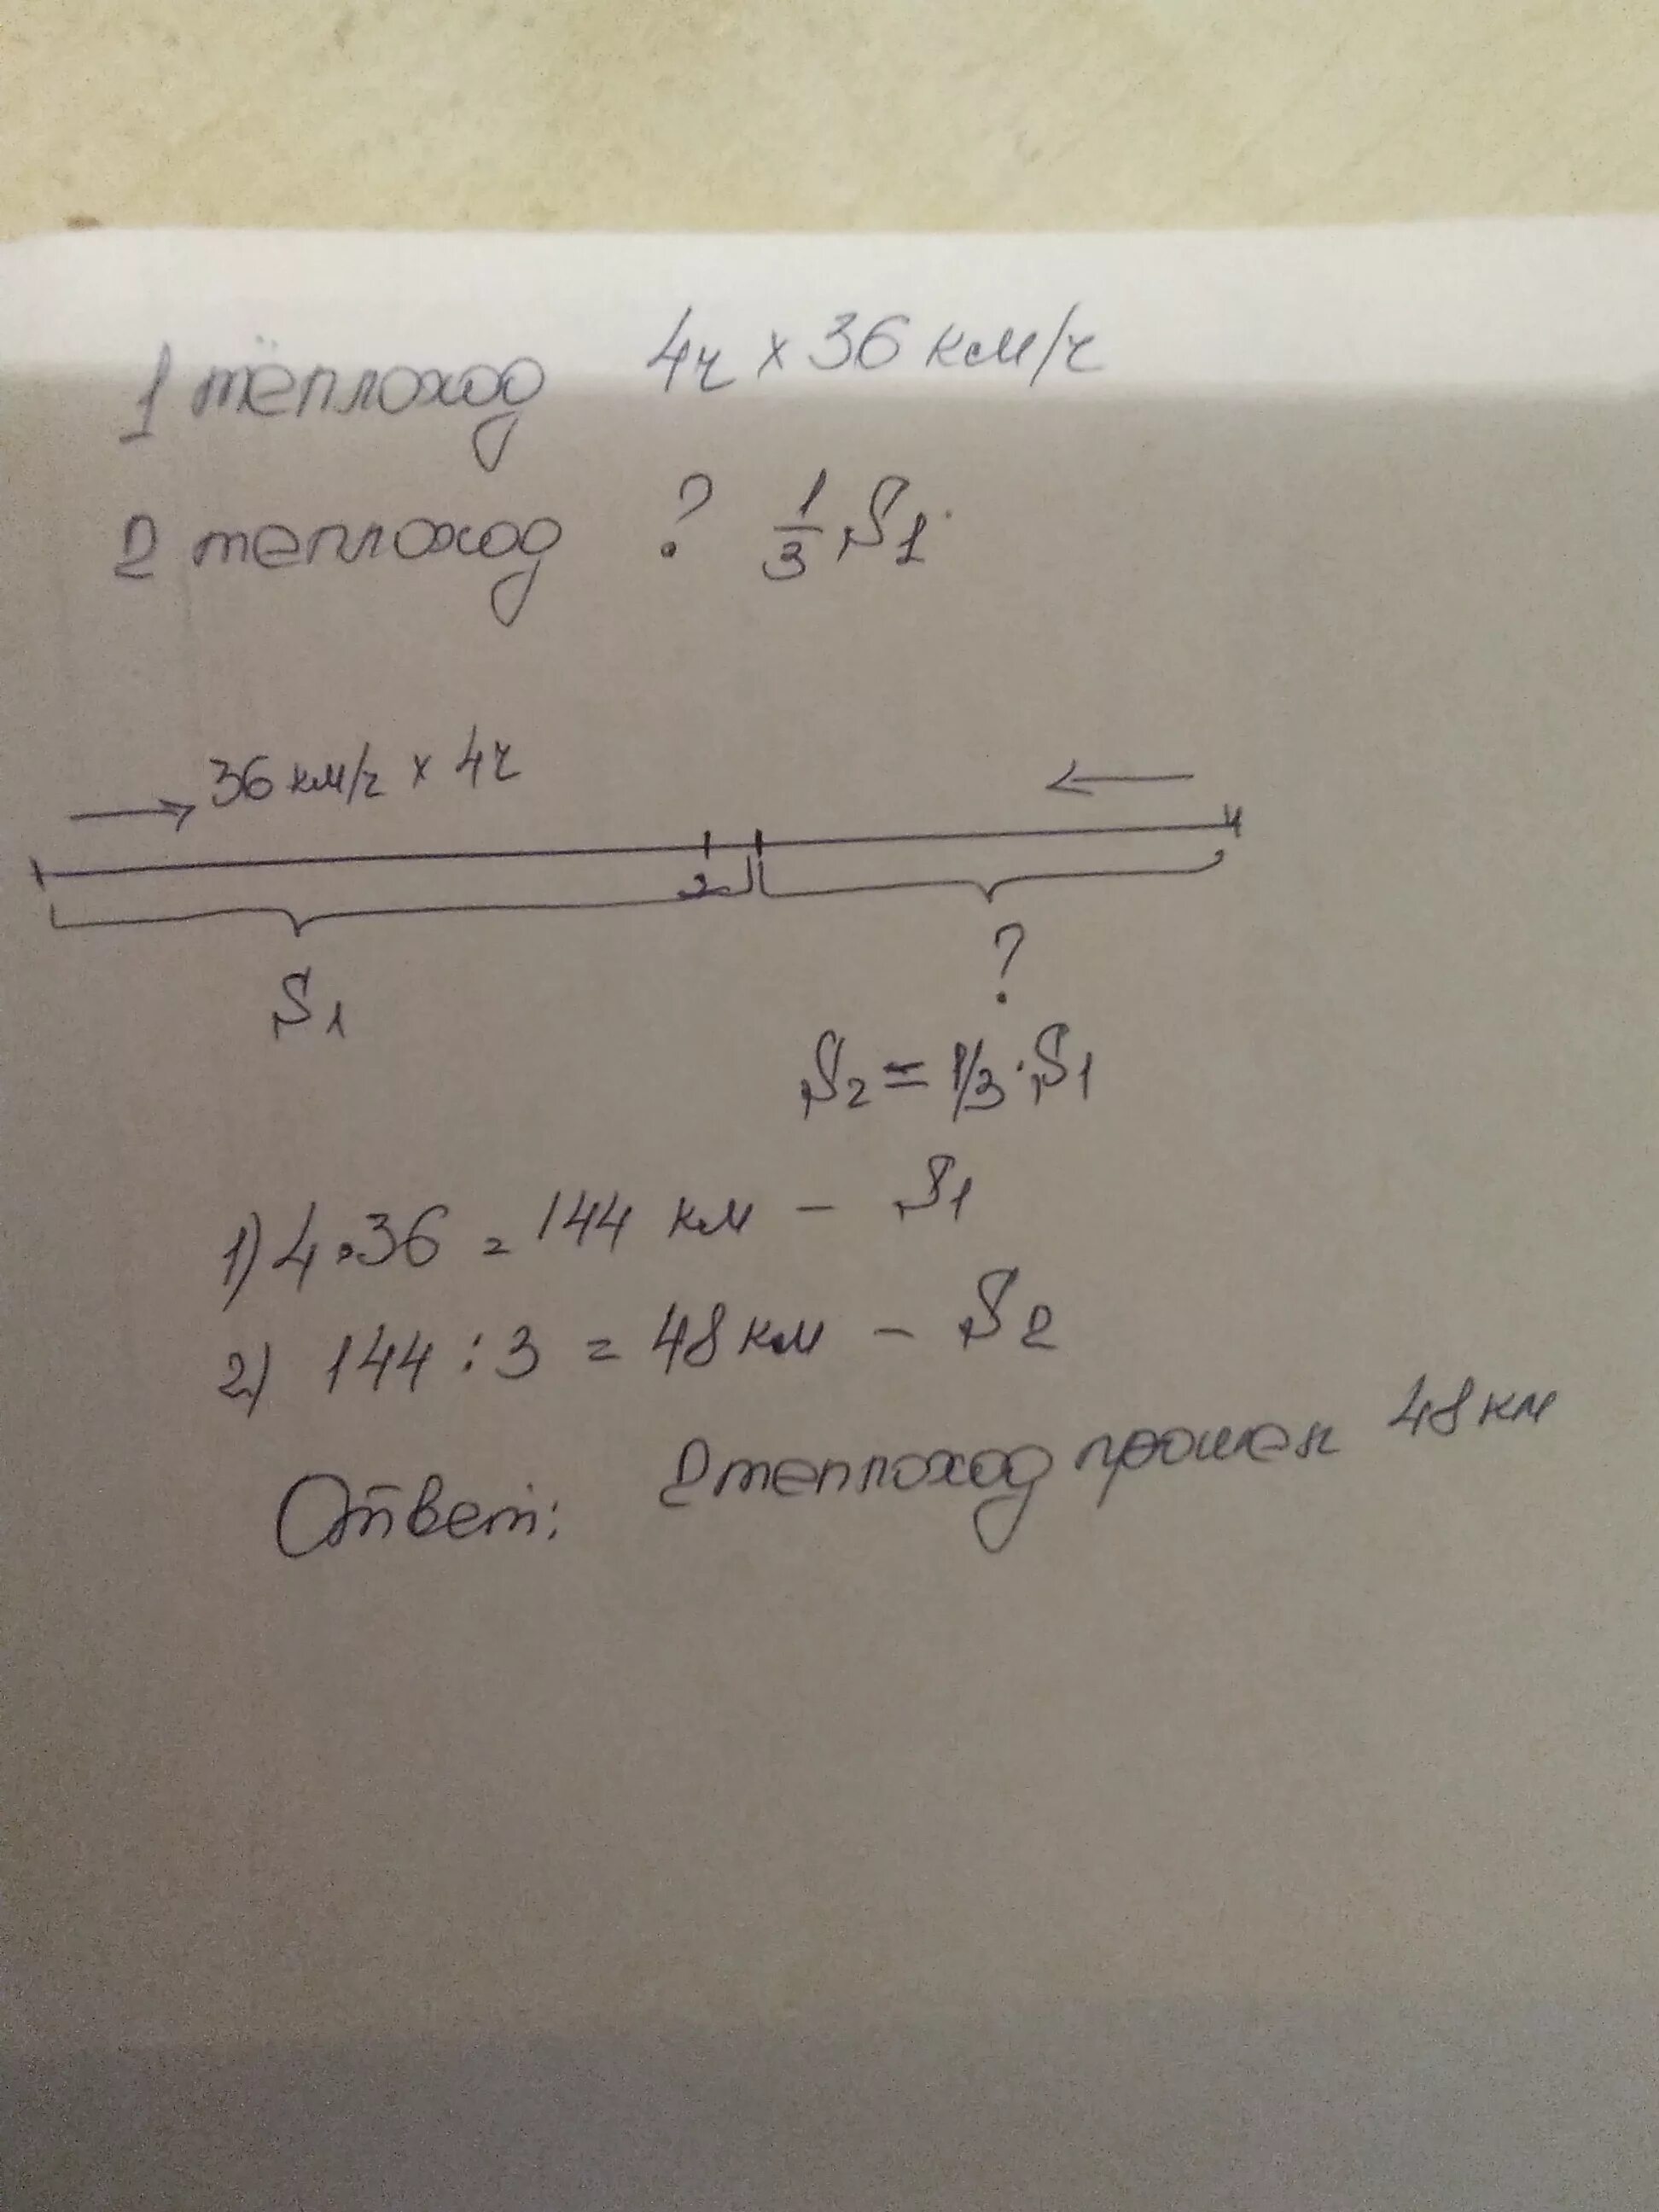 1 теплоход 4ч x 36 км/ч
2 теплоход ? 1/3 S1.
36 км/ч x 4ч
S1
?
S2 = 1/3 · S1
1) 4·36 = 144 км - S1
2) 144 : 3 = 48 км - S2
Ответ: 2 теплоход прошел 48 км